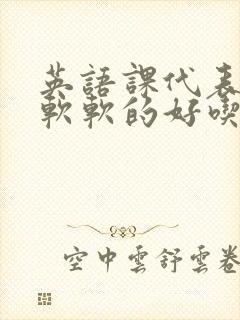 英語課代表
軟軟的好喫
空中雲舒雲卷